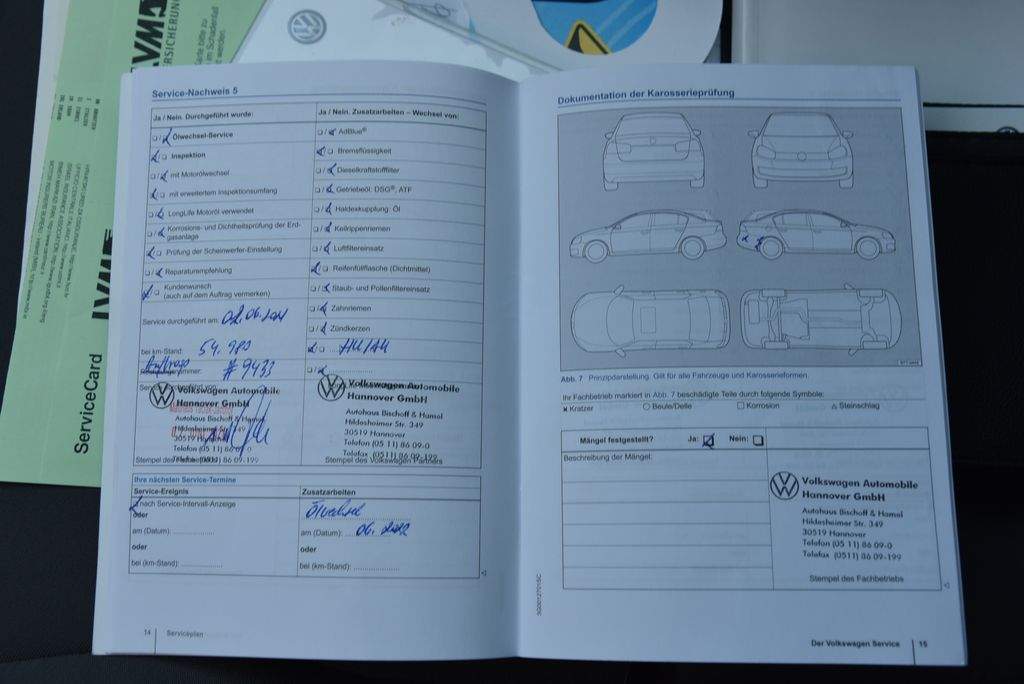 LVM
ServiceCard
Service-Nachweis 5
Ja / Nein. Durchgeführt wurde:
Ölwechsel-Service
Inspektion
mit Motorölwechsel
mit erweitertem Inspektionsumfang
LongLife Motoröl verwendet
Korrosions- und Dichtheitsprüfung der Erd-
gasanlage
Prüfung der Scheinwerfer-Einstellung
Reparaturempfehlung
Kundenwunsch
(auch auf dem Auftrag vermerken)
Service durchgeführt am:
bei km-Stand: 54.980
# 9433
Volkswagen Automobile
Hannover GmbH
Autohaus Bischoff & Hamel
Hildesheimer Str. 349
30519 Hannover
Telefon (05 11) 86 09-0
Telefax (0511) 86 09-199
Ja / Nein. Zusatzarbeiten – Wechsel von:
AdBlue®
Bremsflüssigkeit
Dieselkraftstofffilter
Getriebeöl: DSG®, ATF
Haldexkupplung: Öl
Keilrippenriemen
Luftfiltereinsatz
Reifenfüllflasche (Dichtmittel)
Staub- und Pollenfiltereinsatz
Zahnriemen
Zündkerzen
HU/AU
Volkswagen Automobile
Hannover GmbH
Autohaus Bischoff & Hamel
Hildesheimer Str. 349
30519 Hannover
Telefon (05 11) 86 09-0
Telefax (0511) 86 09-199
Stempel des Volkswagen Partners
Ihre nächsten Service-Termine
Service-Ereignis
nach Service-Intervall-Anzeige
oder
am (Datum):
oder
bei (km-Stand):
Zusatzarbeiten
Ölwechsel
am (Datum): 06. 2022
oder
bei (km-Stand):
14 Serviceplan
Dokumentation der Karosserieprüfung
Abb. 7 Prinzipdarstellung. Gilt für alle Fahrzeuge und Karosserieformen.
Ihr Fachbetrieb markiert in Abb. 7 beschädigte Teile durch folgende Symbole:
Kratzer Beule/Delle Korrosion Steinschlag
Mängel festgestellt? Ja: Nein:
Beschreibung der Mängel:
Volkswagen Automobile
Hannover GmbH
Autohaus Bischoff & Hamel
Hildesheimer Str. 349
30519 Hannover
Telefon (05 11) 86 09-0
Telefax (0511) 86 09-199
Stempel des Fachbetriebs
Der Volkswagen Service 15